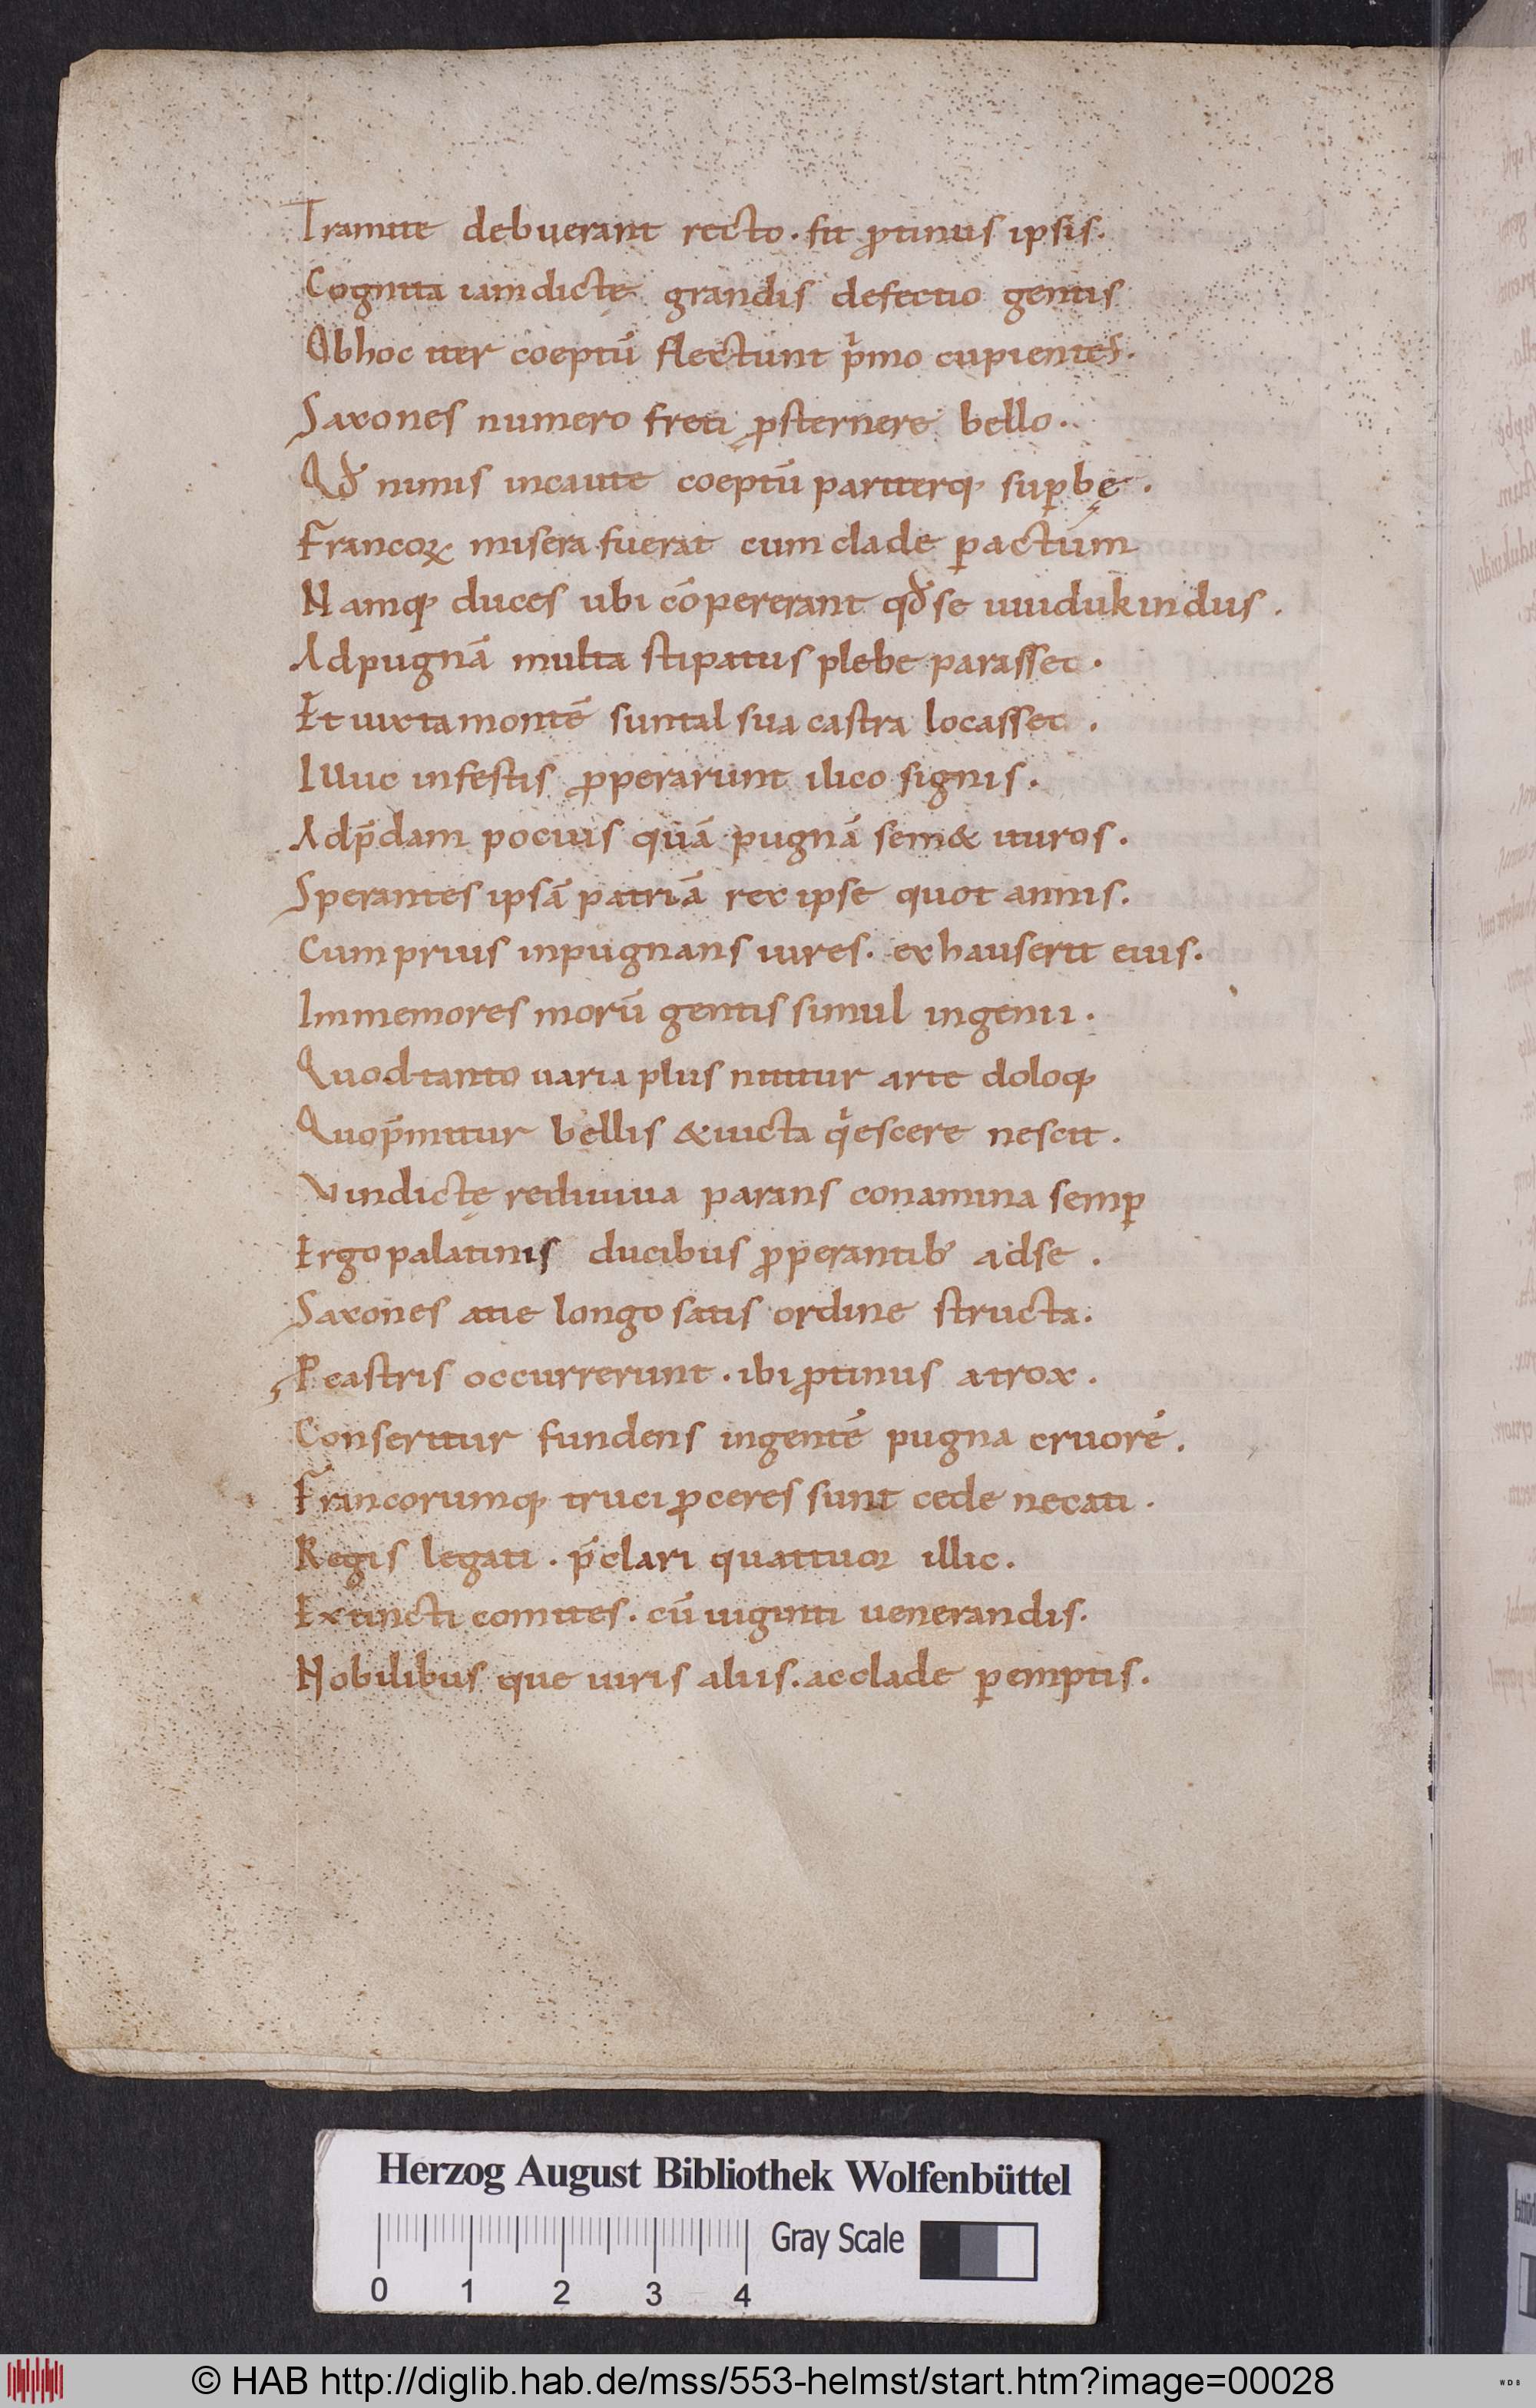 Tramite debuerant recto · fit ꝓtinus ipsis·
Cognita iamdictę grandis defectio gentis
Obhoc iter coeptū flectunt pͥmo cupientes·
Saxones numero freti ꝓsternere bello·
Qđ nimis incaute coeptū pariterq; suꝑbę ·
Francoꝝ misera fuerat cum clade ꝑactum
Namq; duces ubi cōpererant qđ se uuidukindus ·
Adpugnā multa stipatus plebe parasset ·
Et iuxta montē suntal sua castra locasset ·
Illuc infestis ꝓperarunt ilico signis ·
Adp̄dam pocius quā pugnā sem& ituros ·
Sperantes ipsā patriā rex ipse quot annis ·
Cum prius inpugnans uires · exhauserit eius ·
Immemores morū gentis simul ingenii ·
Quod tanto uaria plus nititur arte doloq;
Quop̄mitur bellis & uicta qͥescere nescit ·
Vindictę rediuiua parans conamina semꝑ
Ergo palatinis ducibus ꝓperantib; adse ·
Saxones atie longo satis ordine structa ·
P castris occurrerunt · ibi ꝓtinus atrox ·
Conseritur fundens ingentē pugna cruorē ·
Francorumq; truci ꝓceres sunt cede necati ·
Regis legati · p̄clari quattuor illic ·
Extincti comites · cū uiginti uenerandis ·
Nobilibus que uiris aliis · ac clade ꝑemptis ·
Herzog August Bibliothek Wolfenbüttel
Gray Scale
0 1 2 3 4
© HAB http://diglib.hab.de/mss/553-helmst/start.htm?image=00028